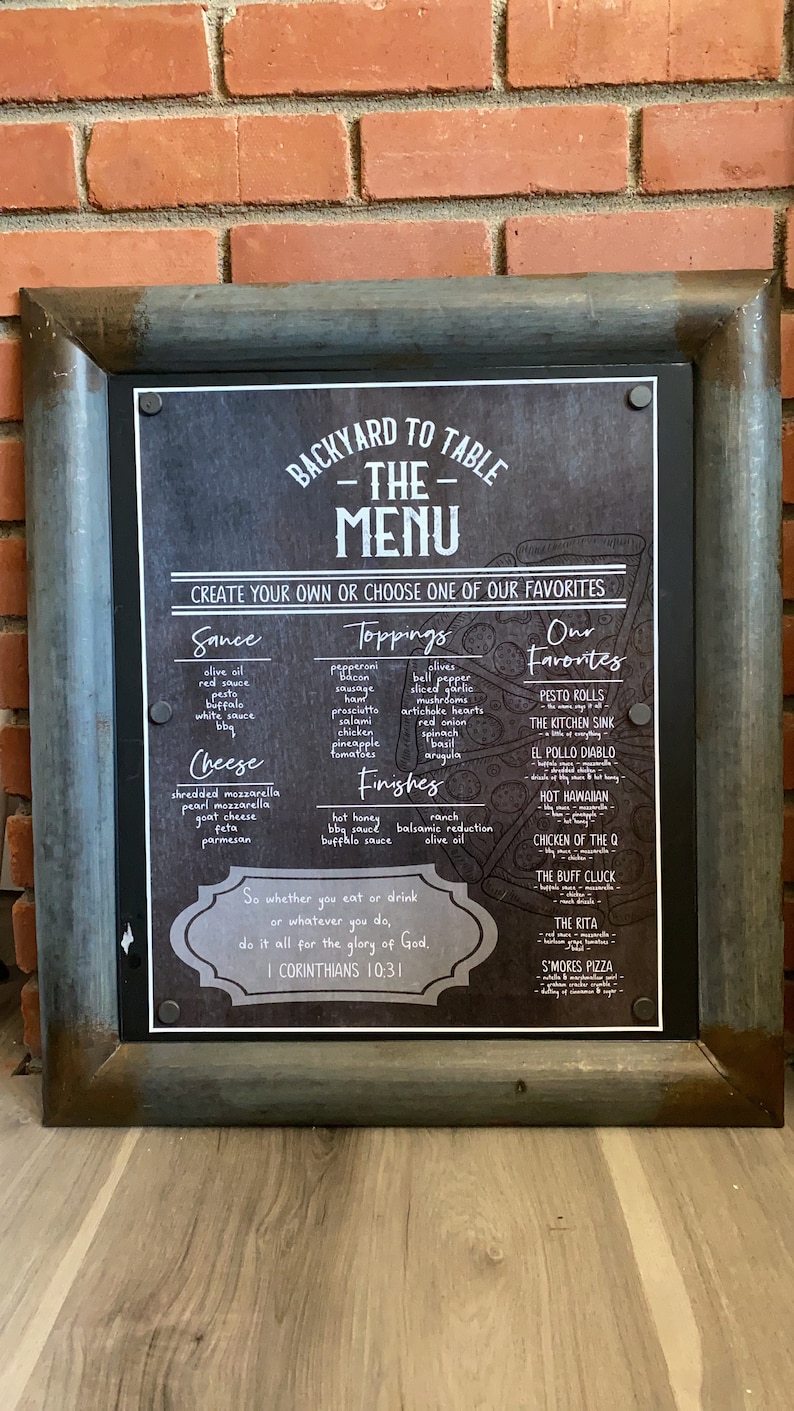 BACKYARD TO TABLE
- THE -
MENU
CREATE YOUR OWN OR CHOOSE ONE OF OUR FAVORITES
Sauce
olive oil
red sauce
pesto
buffalo
white sauce
bbq
Cheese
shredded mozzarella
pearl mozzarella
goat cheese
feta
parmesan
Toppings
pepperoni
bacon
sausage
ham
prosciutto
salami
chicken
pineapple
tomatoes
olives
bell pepper
sliced garlic
mushrooms
artichoke hearts
red onion
spinach
basil
arugula
Finishes
hot honey
bbq sauce
buffalo sauce
ranch
balsamic reduction
olive oil
Our
Favorites
PESTO ROLLS
- the name says it all -
THE KITCHEN SINK
- a little of everything -
EL POLLO DIABLO
- buffalo sauce - mozzarella -
- shredded chicken -
- drizzle of bbq sauce & hot honey -
HOT HAWAIIAN
- bbq sauce - mozzarella -
- ham - pineapple -
- hot honey -
CHICKEN OF THE Q
- bbq sauce - mozzarella -
- chicken -
THE BUFF CLUCK
- buffalo sauce - mozzarella -
- chicken -
- ranch drizzle -
THE RITA
- red sauce - mozzarella -
- heirloom grape tomatoes -
- basil -
S'MORES PIZZA
- nutella & marshmallow swirl -
- graham cracker crumble -
- dusting of cinnamon & sugar -
So whether you eat or drink
or whatever you do,
do it all for the glory of God.
1 CORINTHIANS 10:31